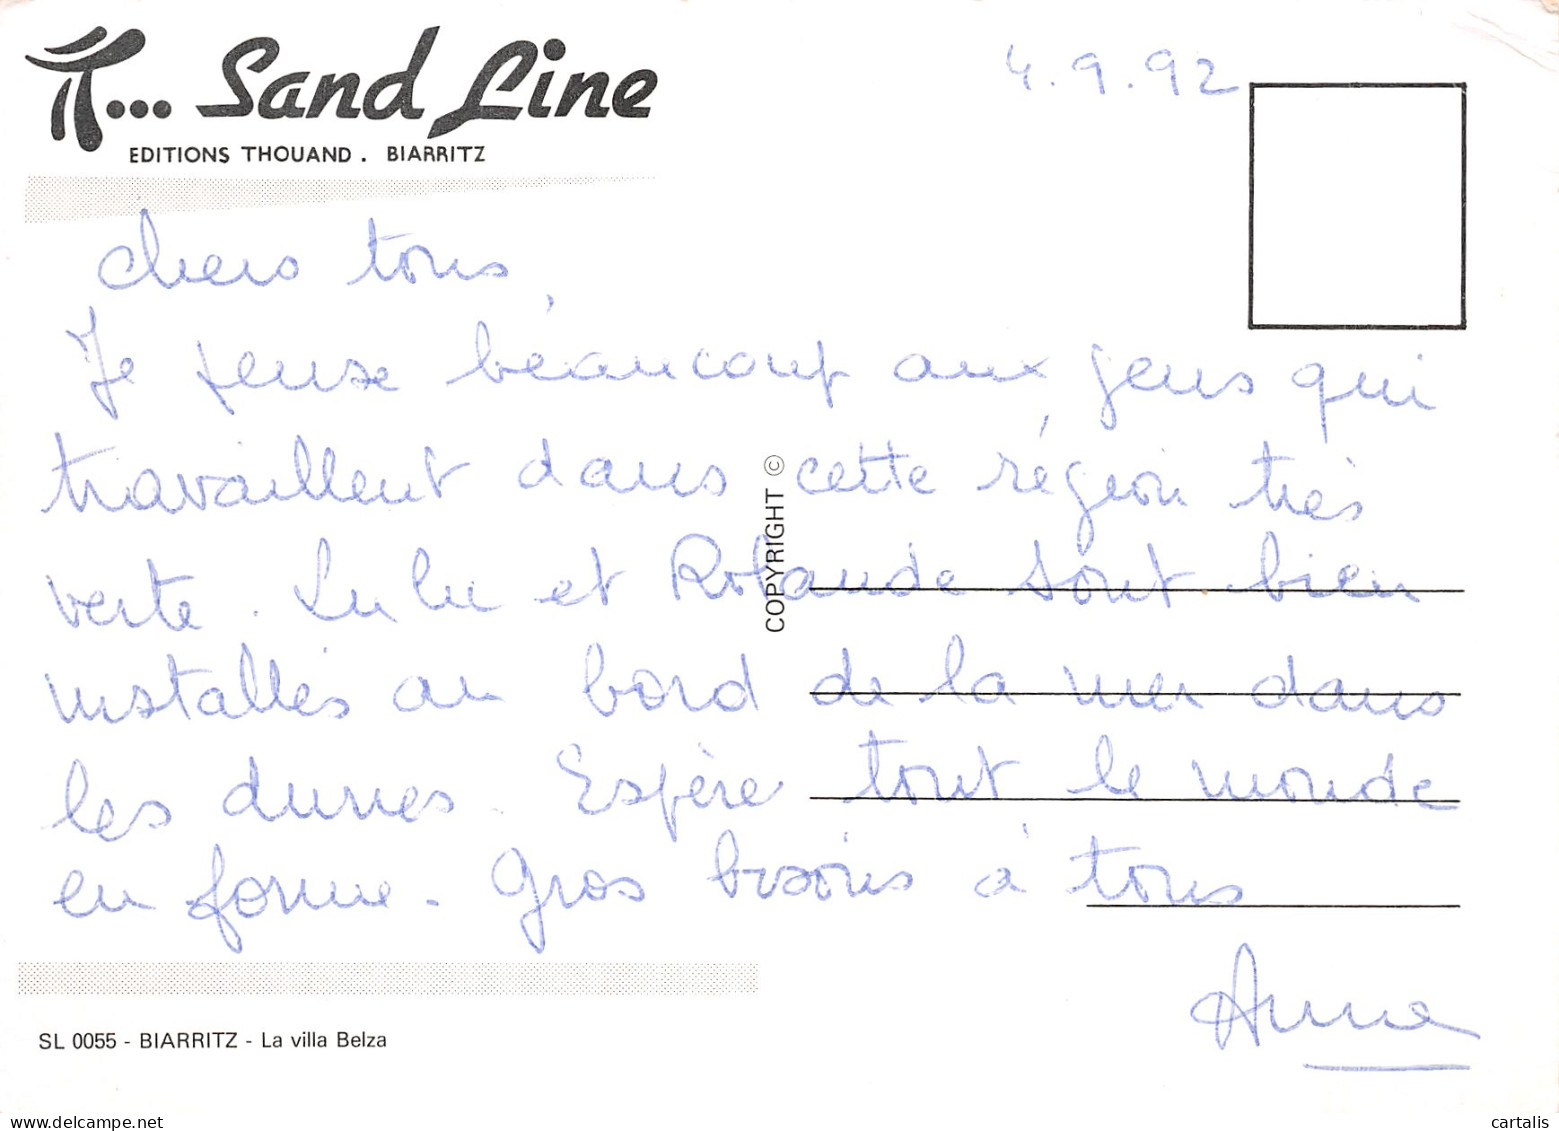 T... Sand Line
EDITIONS THOUAND . BIARRITZ
4.9.92
chers tous,
Je pense beaucoup aux gens qui
travaillent dans cette région très
verte. Lulu et Rolande sont bien
installés au bord de la mer dans
les dunes. Espère tout le monde
en forme. Gros bisous à tous
Anne
COPYRIGHT ©
SL 0055 - BIARRITZ - La villa Belza
cartalis